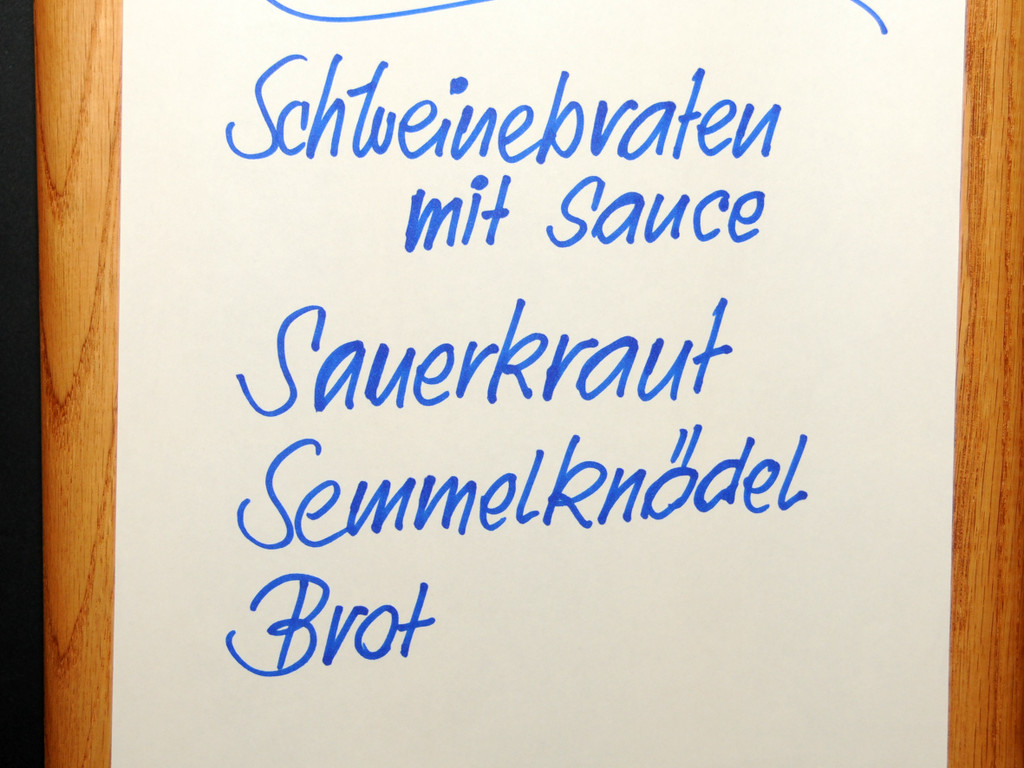 Schweinebraten
mit Sauce
Sauerkraut
Semmelknödel
Brot